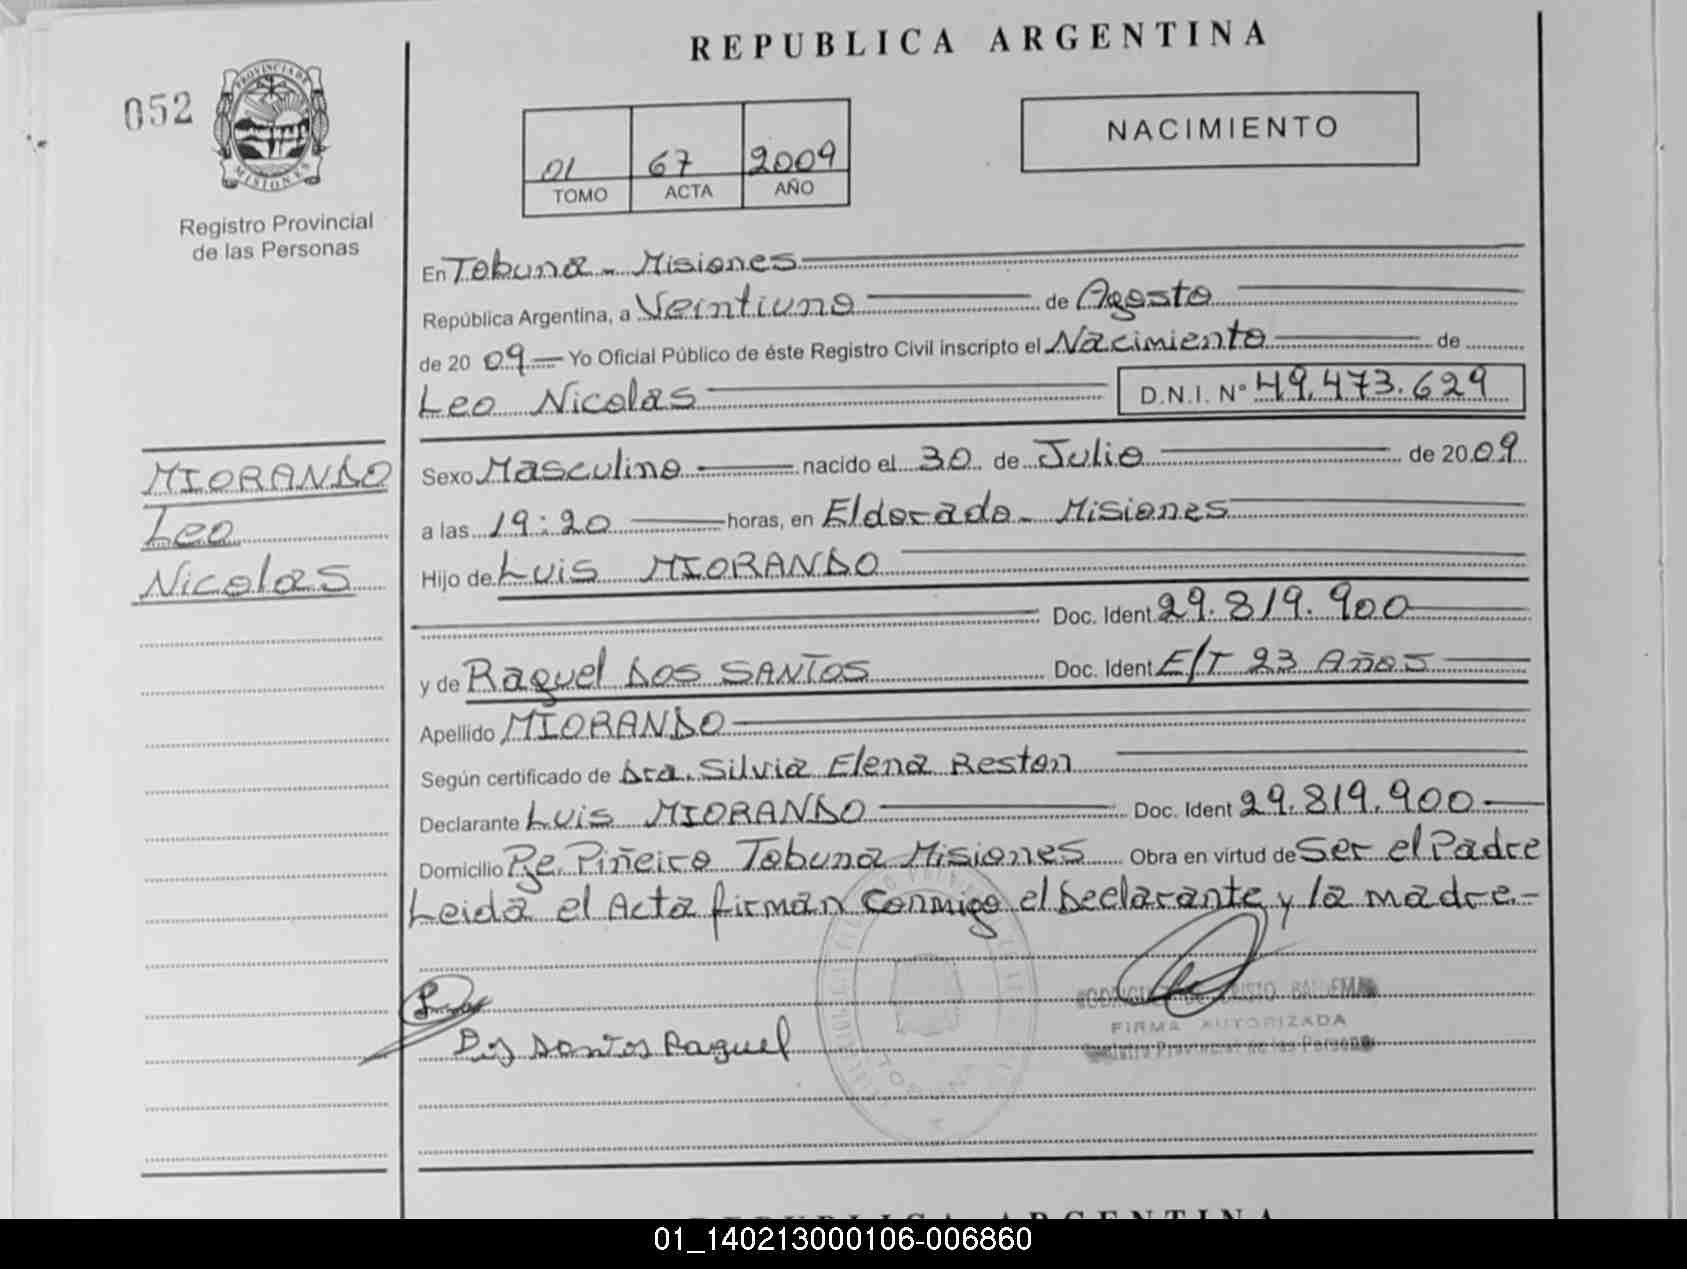 REPUBLICA ARGENTINA
052
PROVINCIA DE
MISIONES
Registro Provincial
de las Personas
NACIMIENTO
01 67 2009
TOMO ACTA AÑO
En Tobuna - Misiones
República Argentina, a Veintiuno de Agosto
de 20 09 Yo Oficial Público de éste Registro Civil inscripto el Nacimiento de
Leo Nicolas D.N.I. Nº 49.473.629
MIORANDO
Leo
Nicolas
Sexo Masculino nacido el 30 de Julio de 20 09
a las 19:20 horas, en Eldorado - Misiones
Hijo de Luis MIORANDO
Doc. Ident 29.819.900
y de Raquel DOS SANTOS Doc. Ident E/T 23 Años
Apellido MIORANDO
Según certificado de Dra. Silvia Elena Reston
Declarante Luis MIORANDO Doc. Ident 29.819.900
Domicilio Pje. Piñeiro Tobuna Misiones Obra en virtud de Ser el Padre
Leida el Acta firman Conmigo el Declarante y la madre.-
Dos Santos Raquel
FIRMA AUTORIZADA
Registro Provincial de las Personas
REPUBLICA ARGENTINA
01_140213000106-006860